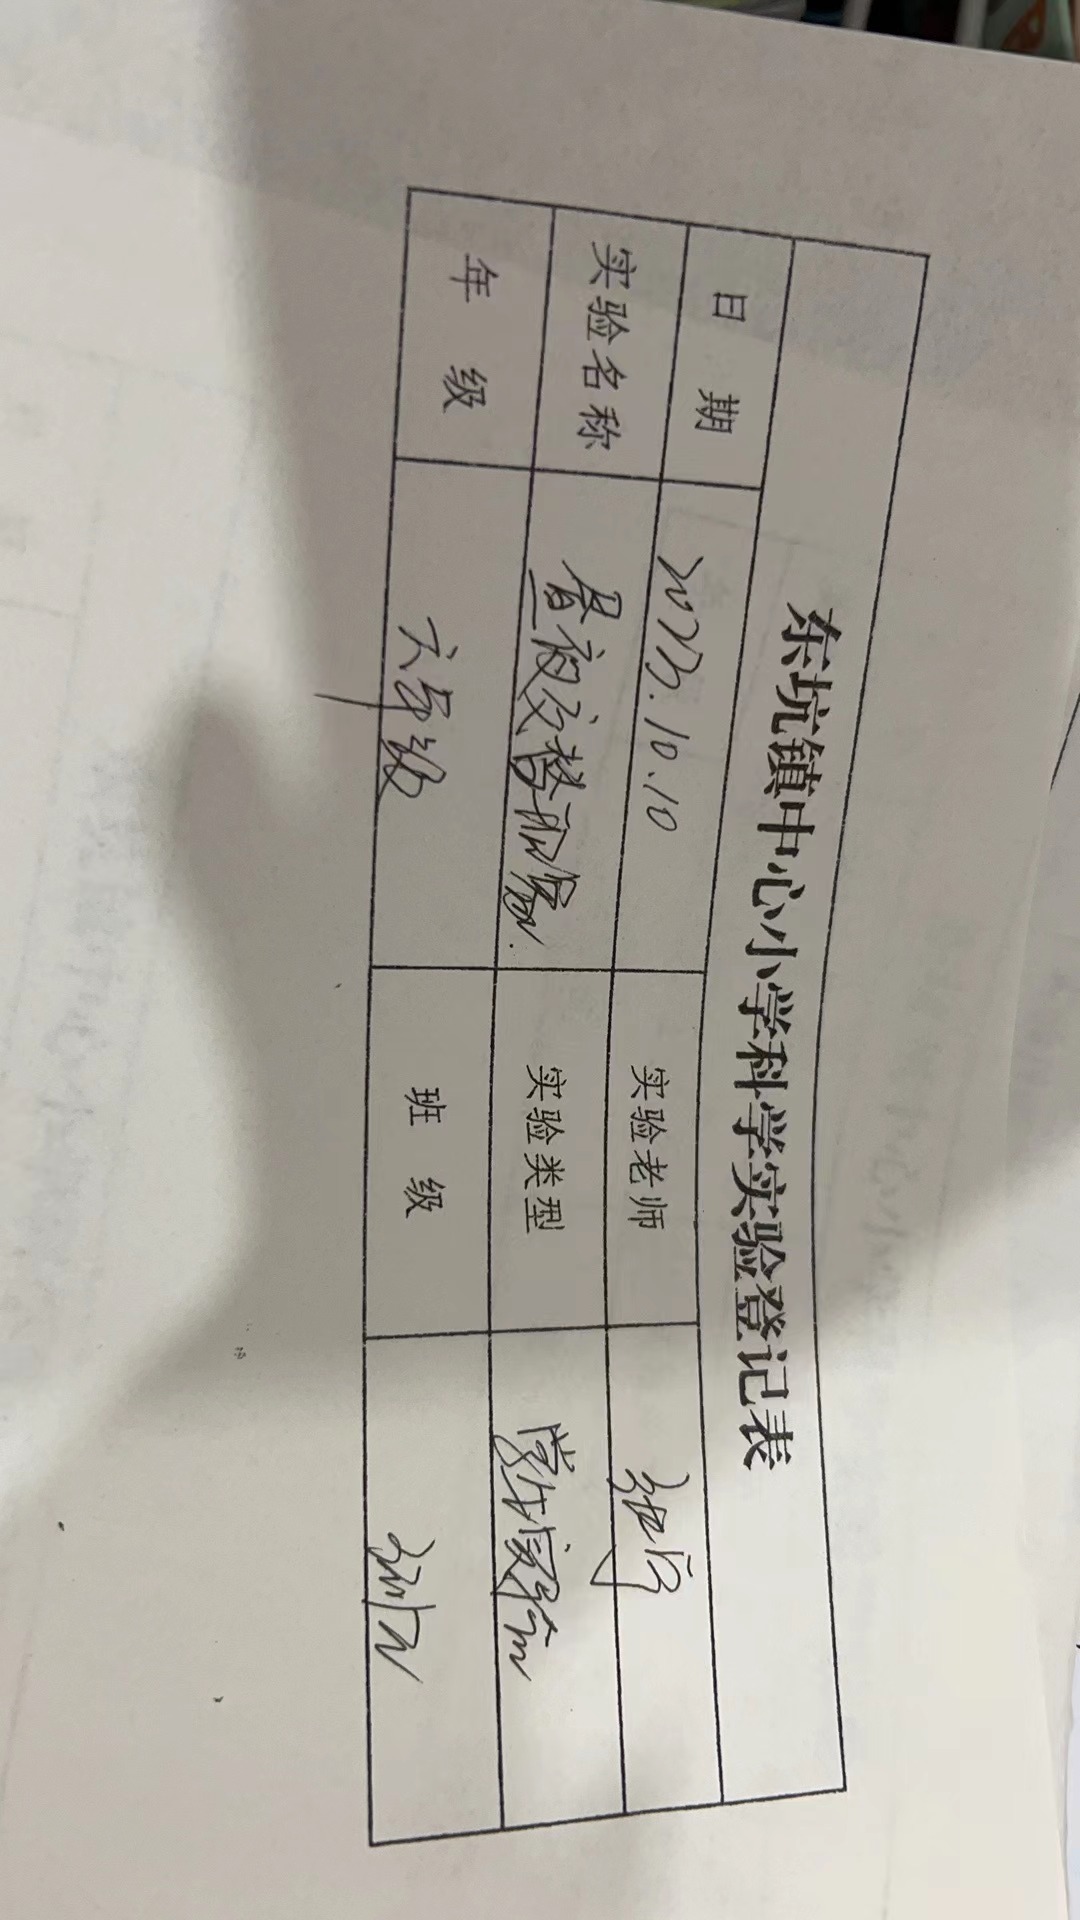 东坑镇中心小学科学实验登记表
日 期 2023.10.10 实验老师
实验名称 昼夜交替现象. 实验类型 实验
年 级 六年级 班 级